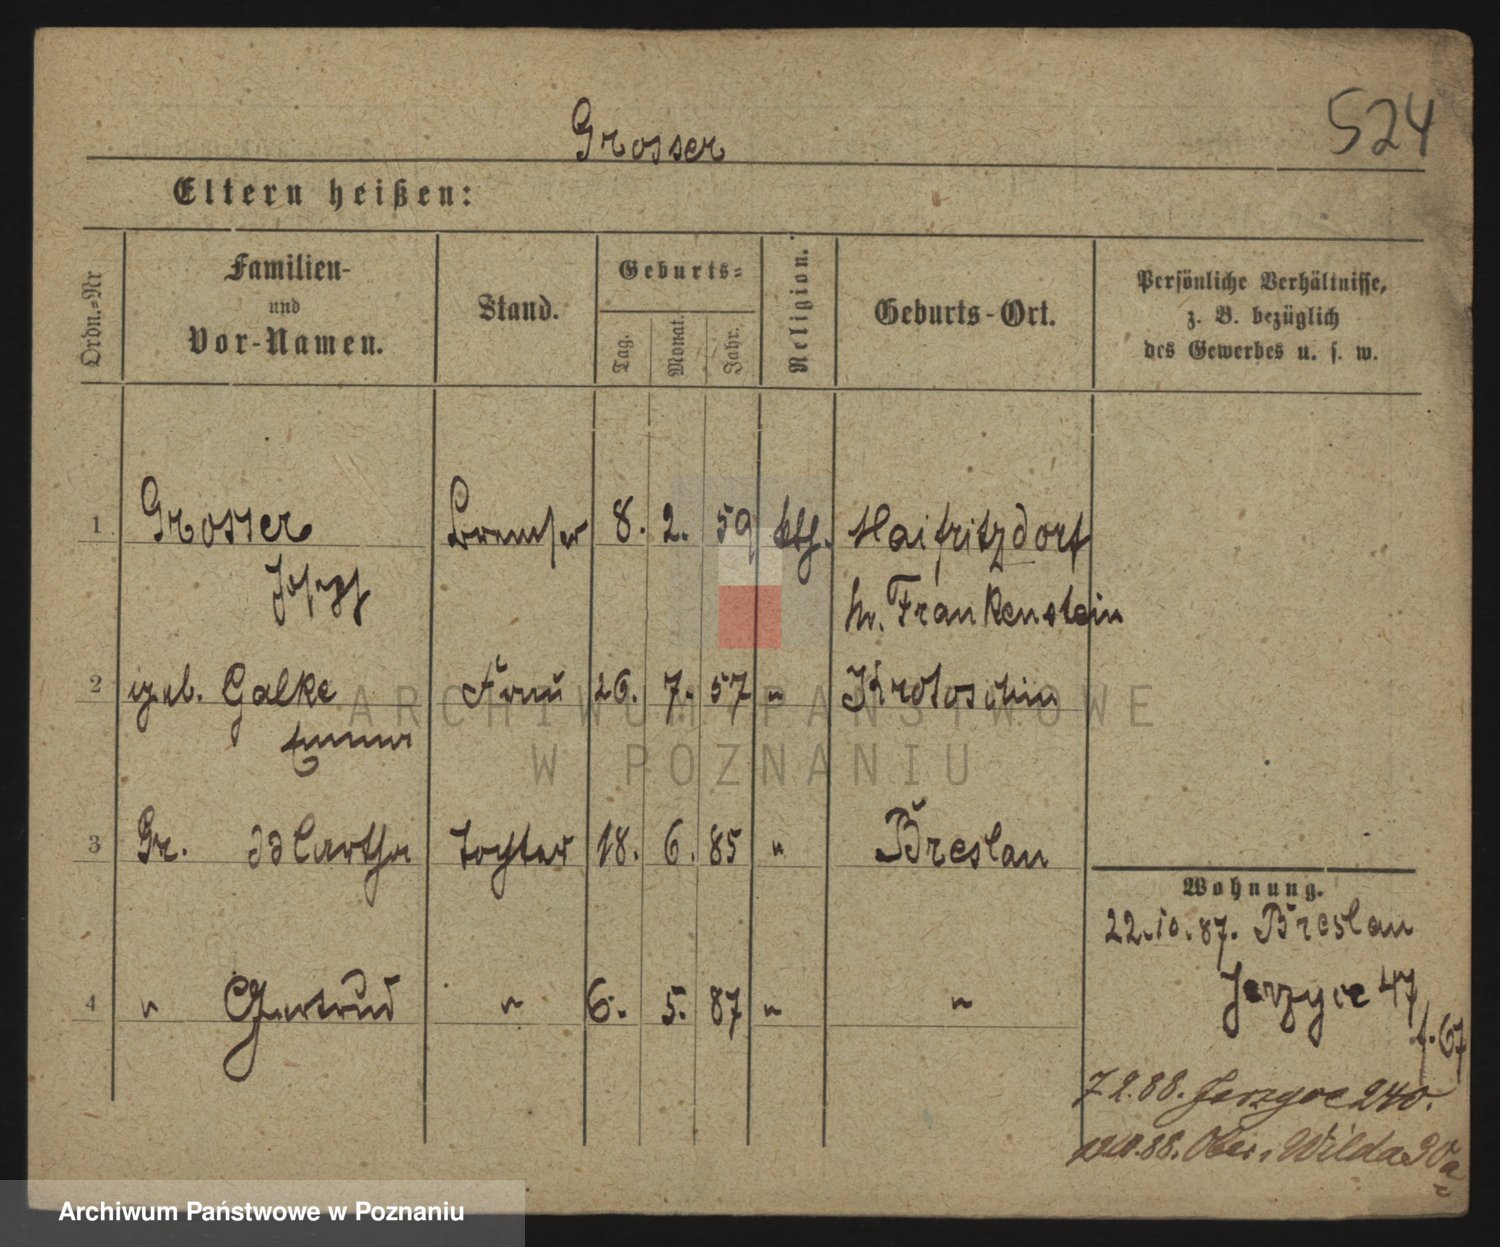 Grosser
524
Eltern heißen:
Ordn.-Nr
Familien-
und
Vor-Namen.
Stand.
Geburts-
Tag.
Monat.
Jahr.
Religion.
Geburts-Ort.
Persönliche Verhältnisse,
z. B. bezüglich
des Gewerbes u. s. w.
1 Grosser Bremser 8. 2. 59 kth. Maifritzdorf
Josef
Kr. Frankenstein
2 geb. Galke Frau 26. 7. 57 " Krotoschin
Emma
3 Gr. Martha Tochter 18. 6. 85 " Breslau
Wohnung.
22.10.87. Breslau
4 " Gertrud " 6. 5. 87 " "
Jerzyce 47
f. 67
7 2.88. Jerzyce 240.
88. Ober Wilda 90a
ARCHIWUM PAŃSTWOWE
W POZNANIU
Archiwum Państwowe w Poznaniu